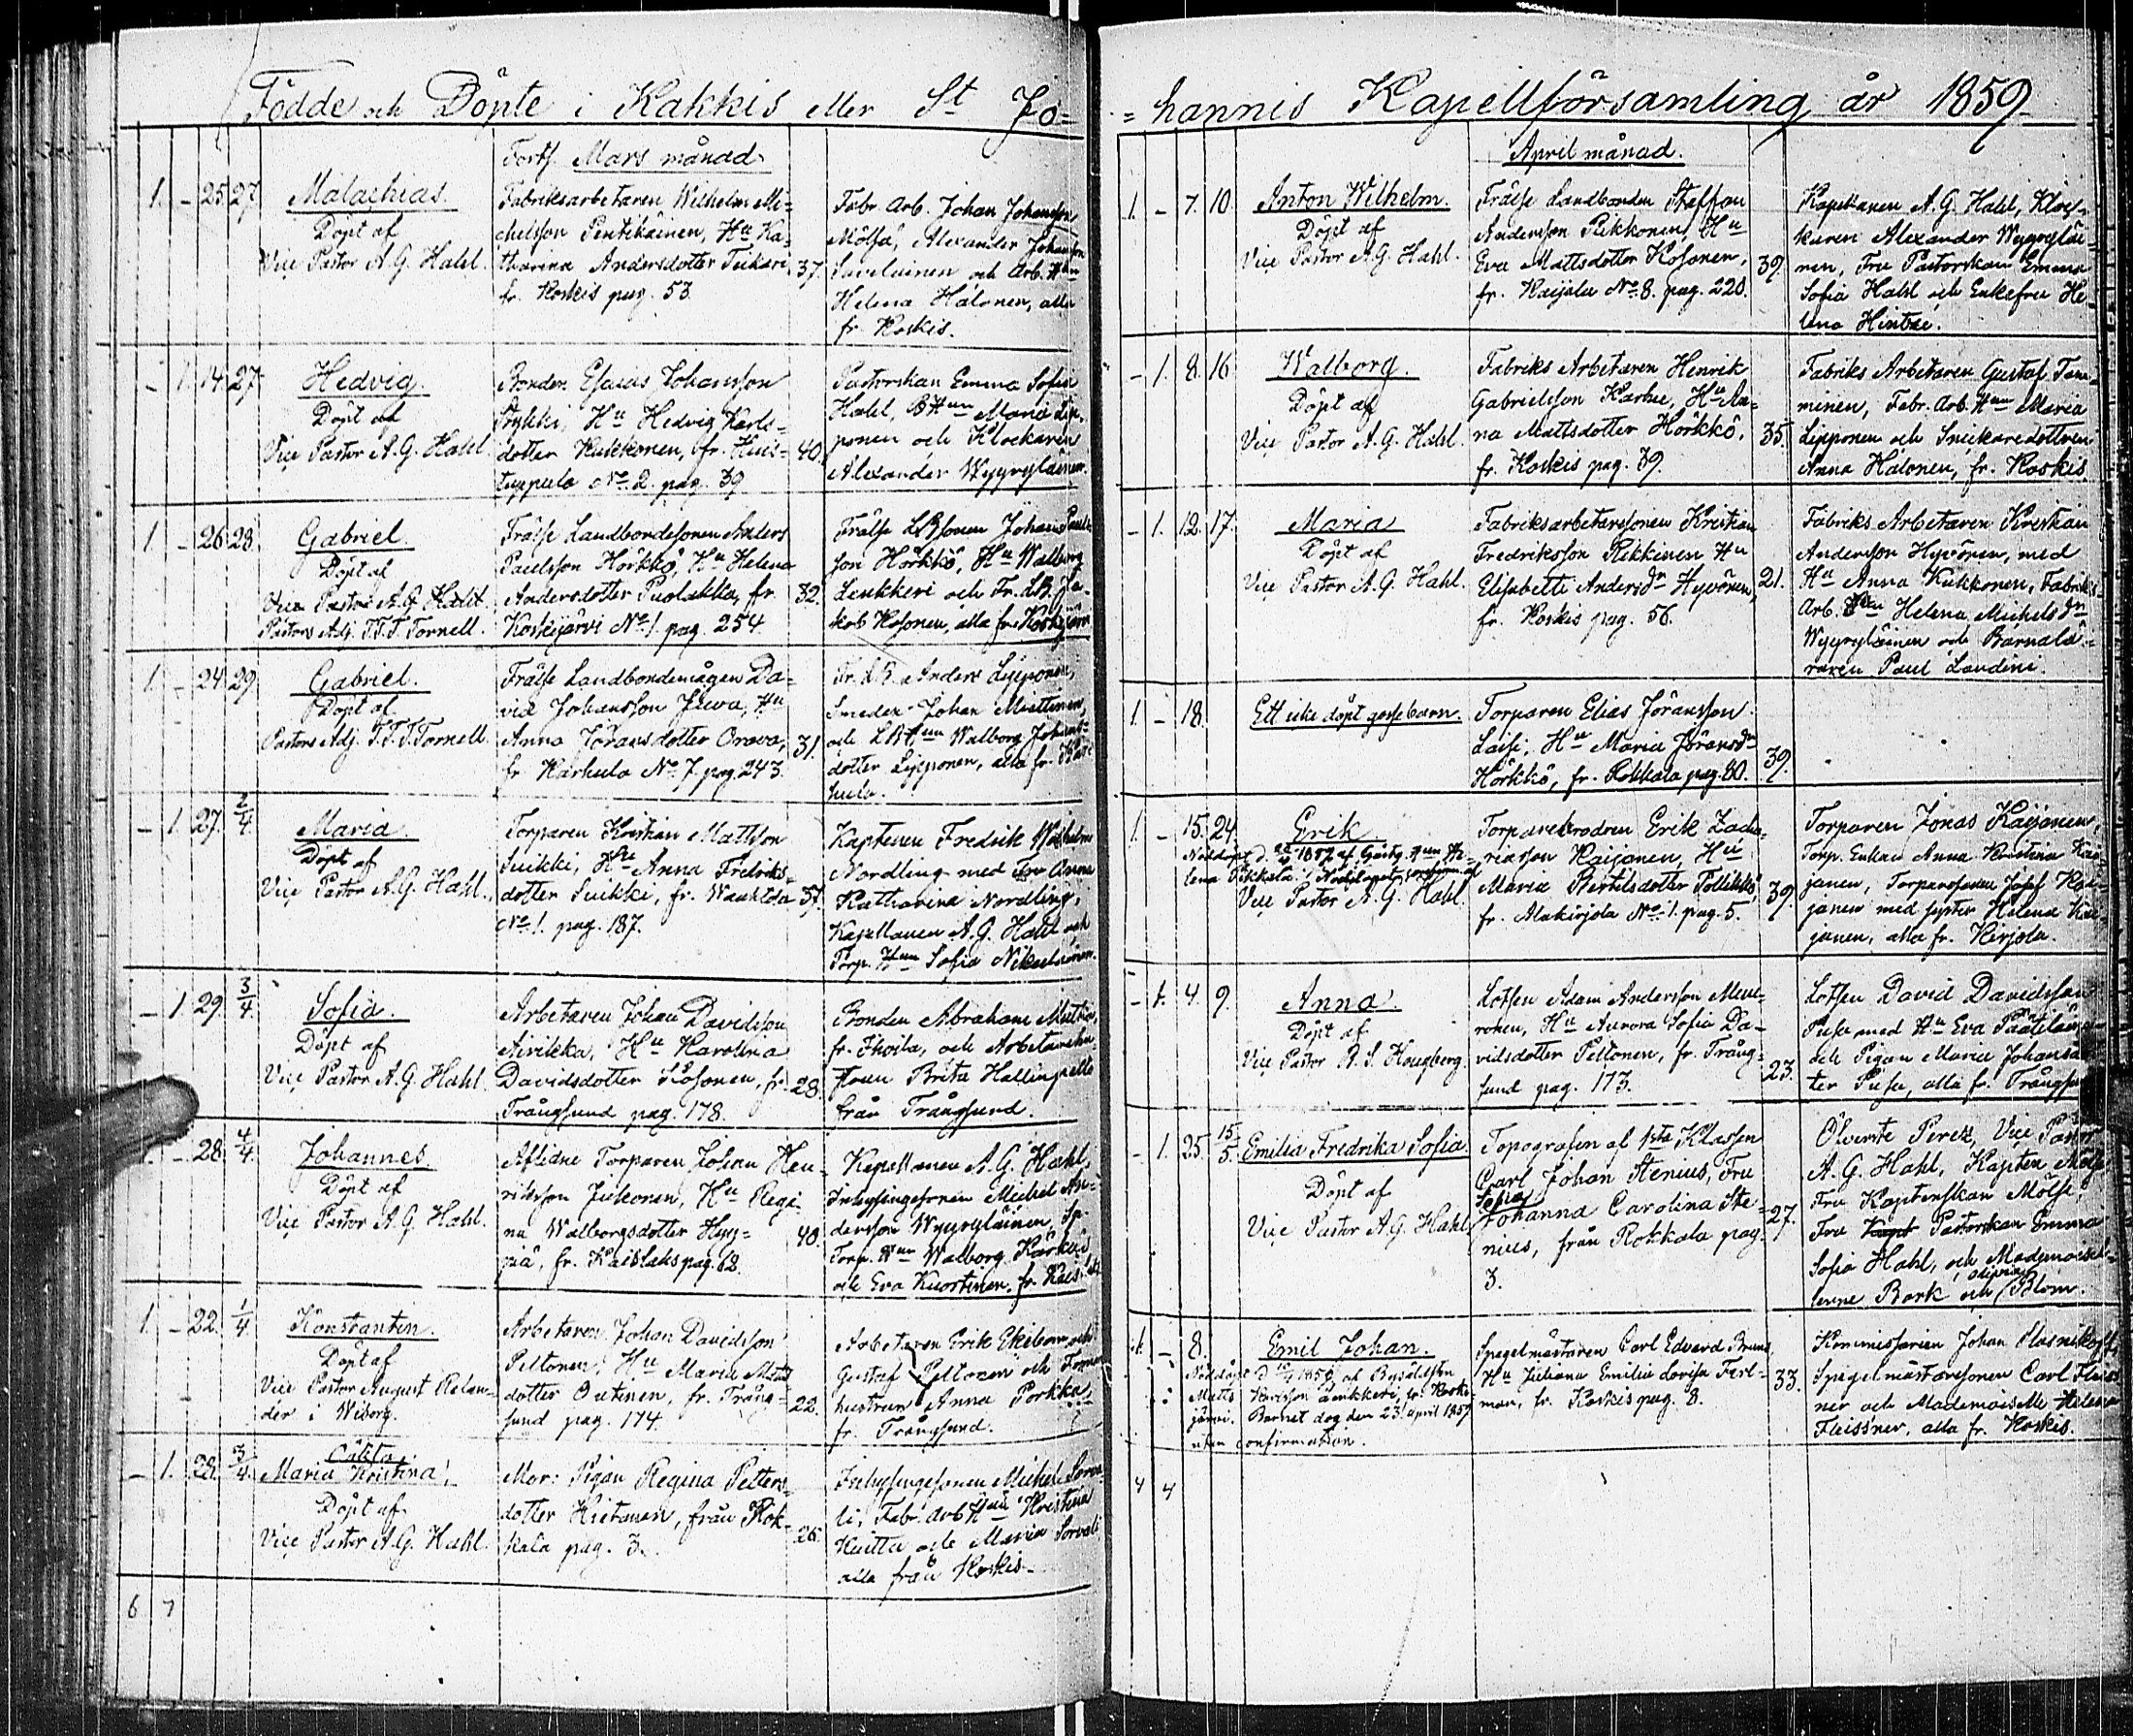 Födde och Döpte i Kakkis eller St Jo=
Fortf. Mars månad.
1. - 25. 27. Malachias.
Döpt af
Vice Pastor A. G. Hahl.
Fabriksarbetaren Wilhelm Mi=
chelsson Pentikäinen, Hu Ka=
tharina Andersdotter Teikari,
fr. Koskis pag. 53.
37.
Fabr. Arb. Johan Johansson
Mölsä, Alexander Johansson
Saveluinen och Arb. Hun
Helena Halonen, alla
fr. Koskis.
- 1. 14. 27. Hedvig.
Döpt af
Vice Pastor A. G. Hahl.
Bonden Esaias Johansson
Stykki, Hu Hedvig Karls=
dotter Kukkonen, fr. Huis=
tuppula No 2. pag. 39
40.
Pastorskan Emma Sofia
Hahl, BHun Maria Lip=
ponen och Klockaren
Alexander Wyyryläinen
1. - 26. 28. Gabriel.
Döpt af
Vice Pastor A. G. Hahl.
Pastors Adj. T.T.T. Tornell.
Frälse Landbondesonen Anders
Paulsson Hörkkö, Hu Helena
Andersdotter Puolakka, fr.
Koskijärvi No 1. pag. 254.
32.
Frälse LBsonen Johan Pauls=
son Hörkkö, Hu Walborg
Leukkeri och Fr. LB. Ja=
kob Kosonen, alla fr. Koskijärvi
1. - 24. 29. Gabriel.
Döpt af
Pastors Adj. T.T.T. Tornell.
Frälse Landbondemågen Da=
vid Johansson Juva, Hu
Anna Jöransdotter Orava,
fr. Karhula No 7. pag. 243.
31.
Fr. LB. Anders Lipponen,
Smeden Johan Miettinen
och LBHun Walborg Johans=
dotter Lipponen, alla fr. Kar=
hula.
- 1. 27. 2/4. Maria.
Döpt af
Vice Pastor A. G. Hahl.
Torparen Kristian Mattsson
Suikki, Hu Anna Fredriks=
dotter Suikki, fr.
No 1. pag. 187.
37.
Kaptenen Fredrik Wilhelm
Nordling med Fru Anna
Katharina Nordling,
Kapellanen A. G. Hahl och
Torp. Hun Sofia
- 1. 29. 3/4. Sofia.
Döpt af
Vice Pastor A. G. Hahl.
Arbetaren Johan Davidsson
Airikka, Hu Karolina
Davidsdotter Kosonen, fr.
Trångsund pag. 178.
28.
Bonden Abraham Muttia,
fr. Ihoila, och Arbetarehu=
strun Brita Hallinpello
från Trångsund.
1. - 28. 4/4. Johannes.
Döpt af
Vice Pastor A. G. Hahl.
Aflidne Torparen Johan Hen=
riksson Jukonen, Hu Regi=
na Walborgsdotter Hyy=
piä, fr. Kaislaks pag. 62.
40.
Kapellanen A. G. Hahl,
Inhysingesonen Michel An=
dersson Wyyryläinen,
Torp. Hun Walborg Karhu
och Eva Kuortinen, fr.
1. - 22. 1/4. Konstantin.
Döpt af
Vice Pastor August Relan=
der i Wiborg.
Arbetaren Johan Davidsson
Peltonen, Hu Maria Matts
dotter Outinen, fr. Trång=
sund pag. 174.
22.
Arbetaren Erik Ekebom och
Gustaf Peltonen och
hustrun Anna Porkka,
fr. Trångsund.
- 1. 28. 3/4. Maria Kristina,
Oäkta
Döpt af
Vice Pastor A. G. Hahl.
Mor: Pigan Regina Petters=
dotter Hietanen, från Rok=
kala pag. 3.
26.
Inhysingesonen Michel Sorva=
li, Fabr. Arb Hun Kristina
Kuitta och Maria Sorvali
alla från Koskis.
6 7
=hannis Kapellförsamling år 1859.
April månad.
1. - 7. 10. Anton Wilhelm.
Döpt af
Vice Pastor A. G. Hahl.
Frälse Landbonden Staffan
Andersson Pikkonen, Hu
Eva Mattsdotter Kosonen,
fr. Kaijala No 8. pag. 220.
39.
Kapellanen A. G. Hahl, Kloc=
karen Alexander Wyyryläi=
nen, Fru Pastorskan Emma
Sofia Hahl och Enkefru He=
lena Hintze.
- 1. 8. 16. Walborg.
Döpt af
Vice Pastor A. G. Hahl.
Fabriks Arbetaren Henrik
Gabrielsson Karhu, Hu An=
na Mattsdotter Hörkkö,
fr. Koskis pag. 39.
35.
Fabriks Arbetaren Gustaf Tam=
minen, Fabr. Arb. Hun Maria
Lipponen och Snickaredottren
Anna Halonen, fr. Koskis.
- 1. 12. 17. Maria
Döpt af
Vice Pastor A. G. Hahl.
Fabriksarbetaresonen Kristian
Fredriksson Rikkinen Hu
Elisabetti Andersdr Hyvönen,
fr. Koskis pag. 56.
21.
Fabriks Arbetaren Kristian
Andersson Hyvönen, med
Hu Anna Kukkonen, Fabriks=
Arb. Hun Helena Michelsdr
Wyyryläinen och Barnalä=
raren Paul Landini.
1. - 18. Ett icke döpt gossebarn.
Torparen Elias Jöransson
Laisi, Hu Maria Jöransdr
Hörkkö, fr. Rokkala pag. 80.
39.
1. - 15. 24. Erik.
Nöddöpt d. 1859 af Gästg. Hun He=
lena Pekkala. Nöddopet
Vice Pastor A. G. Hahl.
Torparebrodren Erik Zacha=
riasson Kaijanen, Hu
Maria Bertilsdotter Pollikkö,
fr. Alakirjola No 1. pag. 5.
39.
Torparen Jonas Kaijanen,
Torp. Enkan Anna Kristina Kai=
janen, Torparesonen Josef Kai=
janen med syster Helena Kai=
janen, alla fr. Kirjola.
- 1. 4. 9. Anna.
Döpt af
Vice Pastor R. S. Hougberg
Lotsen Adam Andersson Meu=
ronen, Hu Aurora Sofia Da=
vidsdotter Peltonen, fr. Trång=
sund pag. 173.
23.
Lotsen David Davidsson
Pusa med Hu Eva
och Pigan Maria Johansdot=
ter Pusa, alla fr. Trångsund
- 1. 25. 15/5. Emilia Fredrika Sofia.
Döpt af
Vice Pastor A. G. Hahl
Topografen af 1sta Klassen
Carl Johan Stenius, Fru
Sofia
Johanna Carolina Ste=
nius, från Rokkala pag.
3.
27.
Överste Peretz, Vice Pastor
A. G. Hahl, Kapten Mölse
Fru Kaptenskan Mölse,
Fru Pastorskan Emma
Sofia Hahl, och Mademoisel=
lerne Bork och Blom.
1. - 8. Emil Johan.
Nöddöpt d. 1859 af Bysoldaten
Matts Karlsson Leukkeri, fr. Koski=
järvi. Barnet dog den 23 April 1859
utan confirmation.
Spegelmästaren Carl Edvard Bruns,
Hu Juliana Emilia Lovisa Forl=
man, fr. Koskis pag. 8.
33.
Kommissarien Johan Masnikoff,
Spegelmästaresonen Carl Fleiss=
ner och Mademoiselle Helena
Fleissner, alla fr. Koskis.
4 4